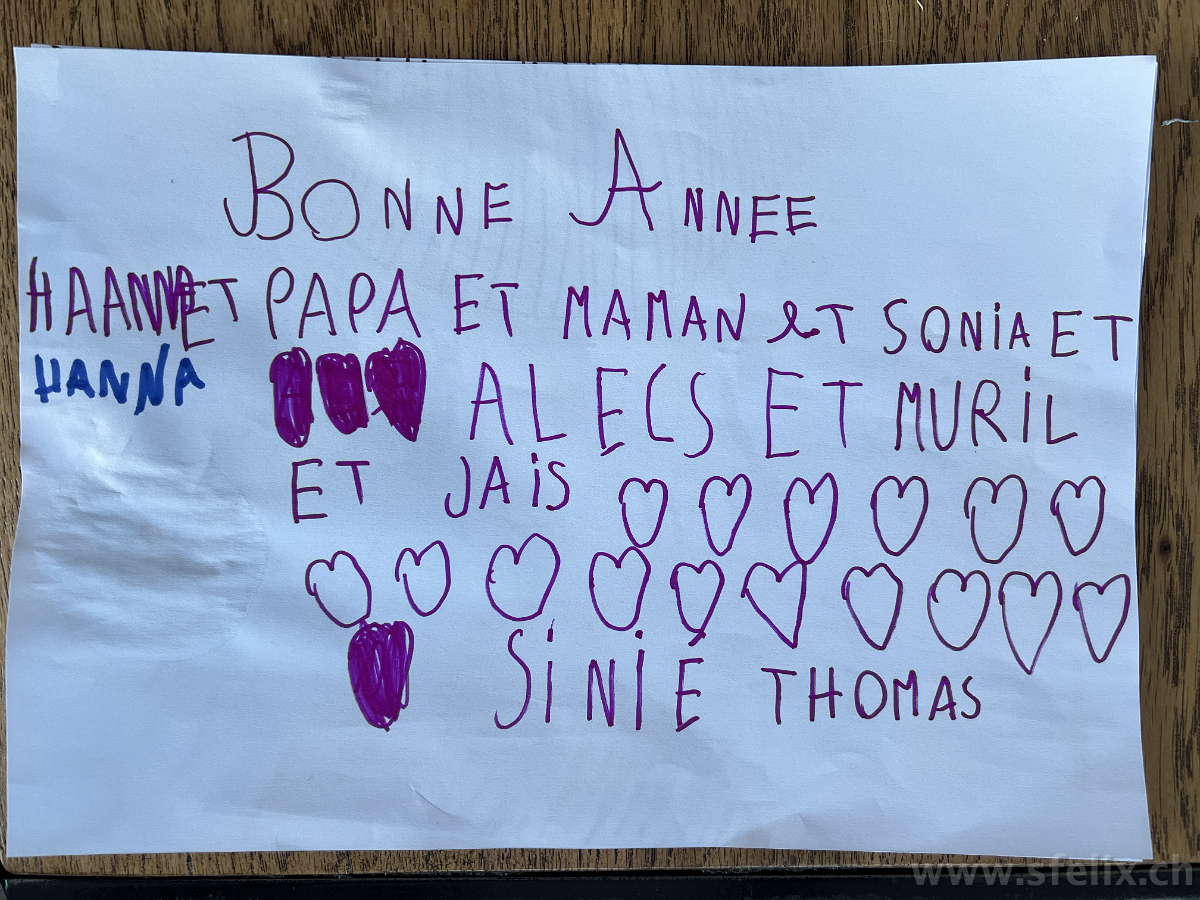 BONNE ANNEE
HAANNA ET PAPA ET MAMAN et SONiA ET
HANNA ALECS ET MURiL
ET JAiS
SiNiÉ THOMAS
www.sfelix.ch